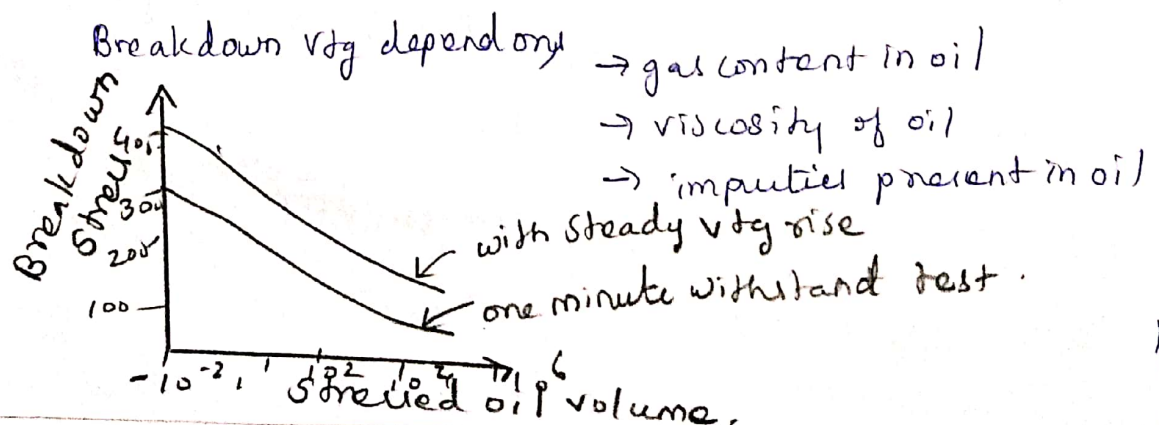 Breakdown vtg depend ony
→ gas content in oil
→ viscosity of oil
→ imputies present in oil
Breakdown
Stress
400
300
200
100
with steady vtg rise
one minute withstand test.
-10⁻² 1 10² 10⁴ 10⁶
Stressed oil volume.